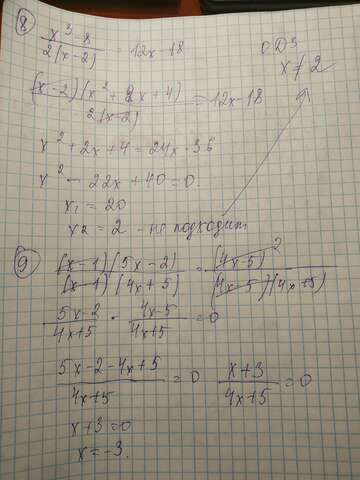 8) (x³-8)/(2(x-2)) = 12x-18 ОДЗ
x≠2
((x-2)(x²+2x+4))/(2(x-2)) = 12x-18
x²+2x+4=24x-36
x²-22x+40=0.
x₁=20
x₂=2 - не подходит
9) ((x-1)(5x-2))/((x-1)(4x+5)) = (4x-5)²/((4x-5)(4x+5))
(5x-2)/(4x+5) - (4x-5)/(4x+5) = 0
(5x-2-4x+5)/(4x+5) = 0 (x+3)/(4x+5) = 0
x+3=0
x=-3.